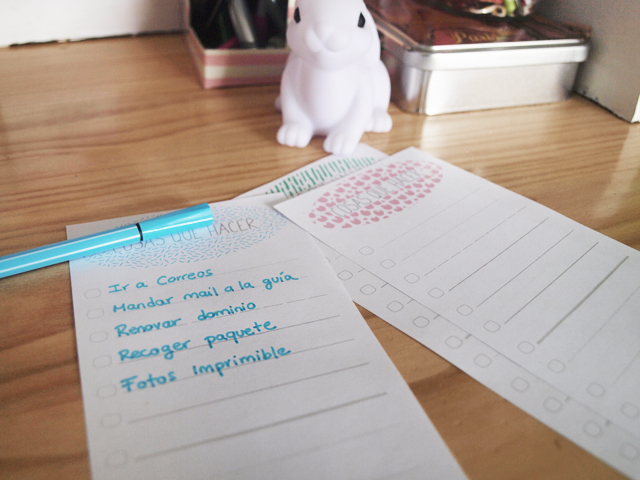 QUE HACER
Ir a Correos
Mandar mail a la guía
Renovar dominio
Recoger paquete
Fotos imprimible